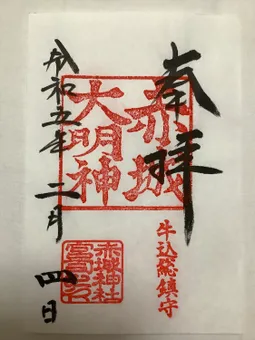 奉拝
赤城
大明神
牛込総鎮守
令和五年二月四日
赤城神社